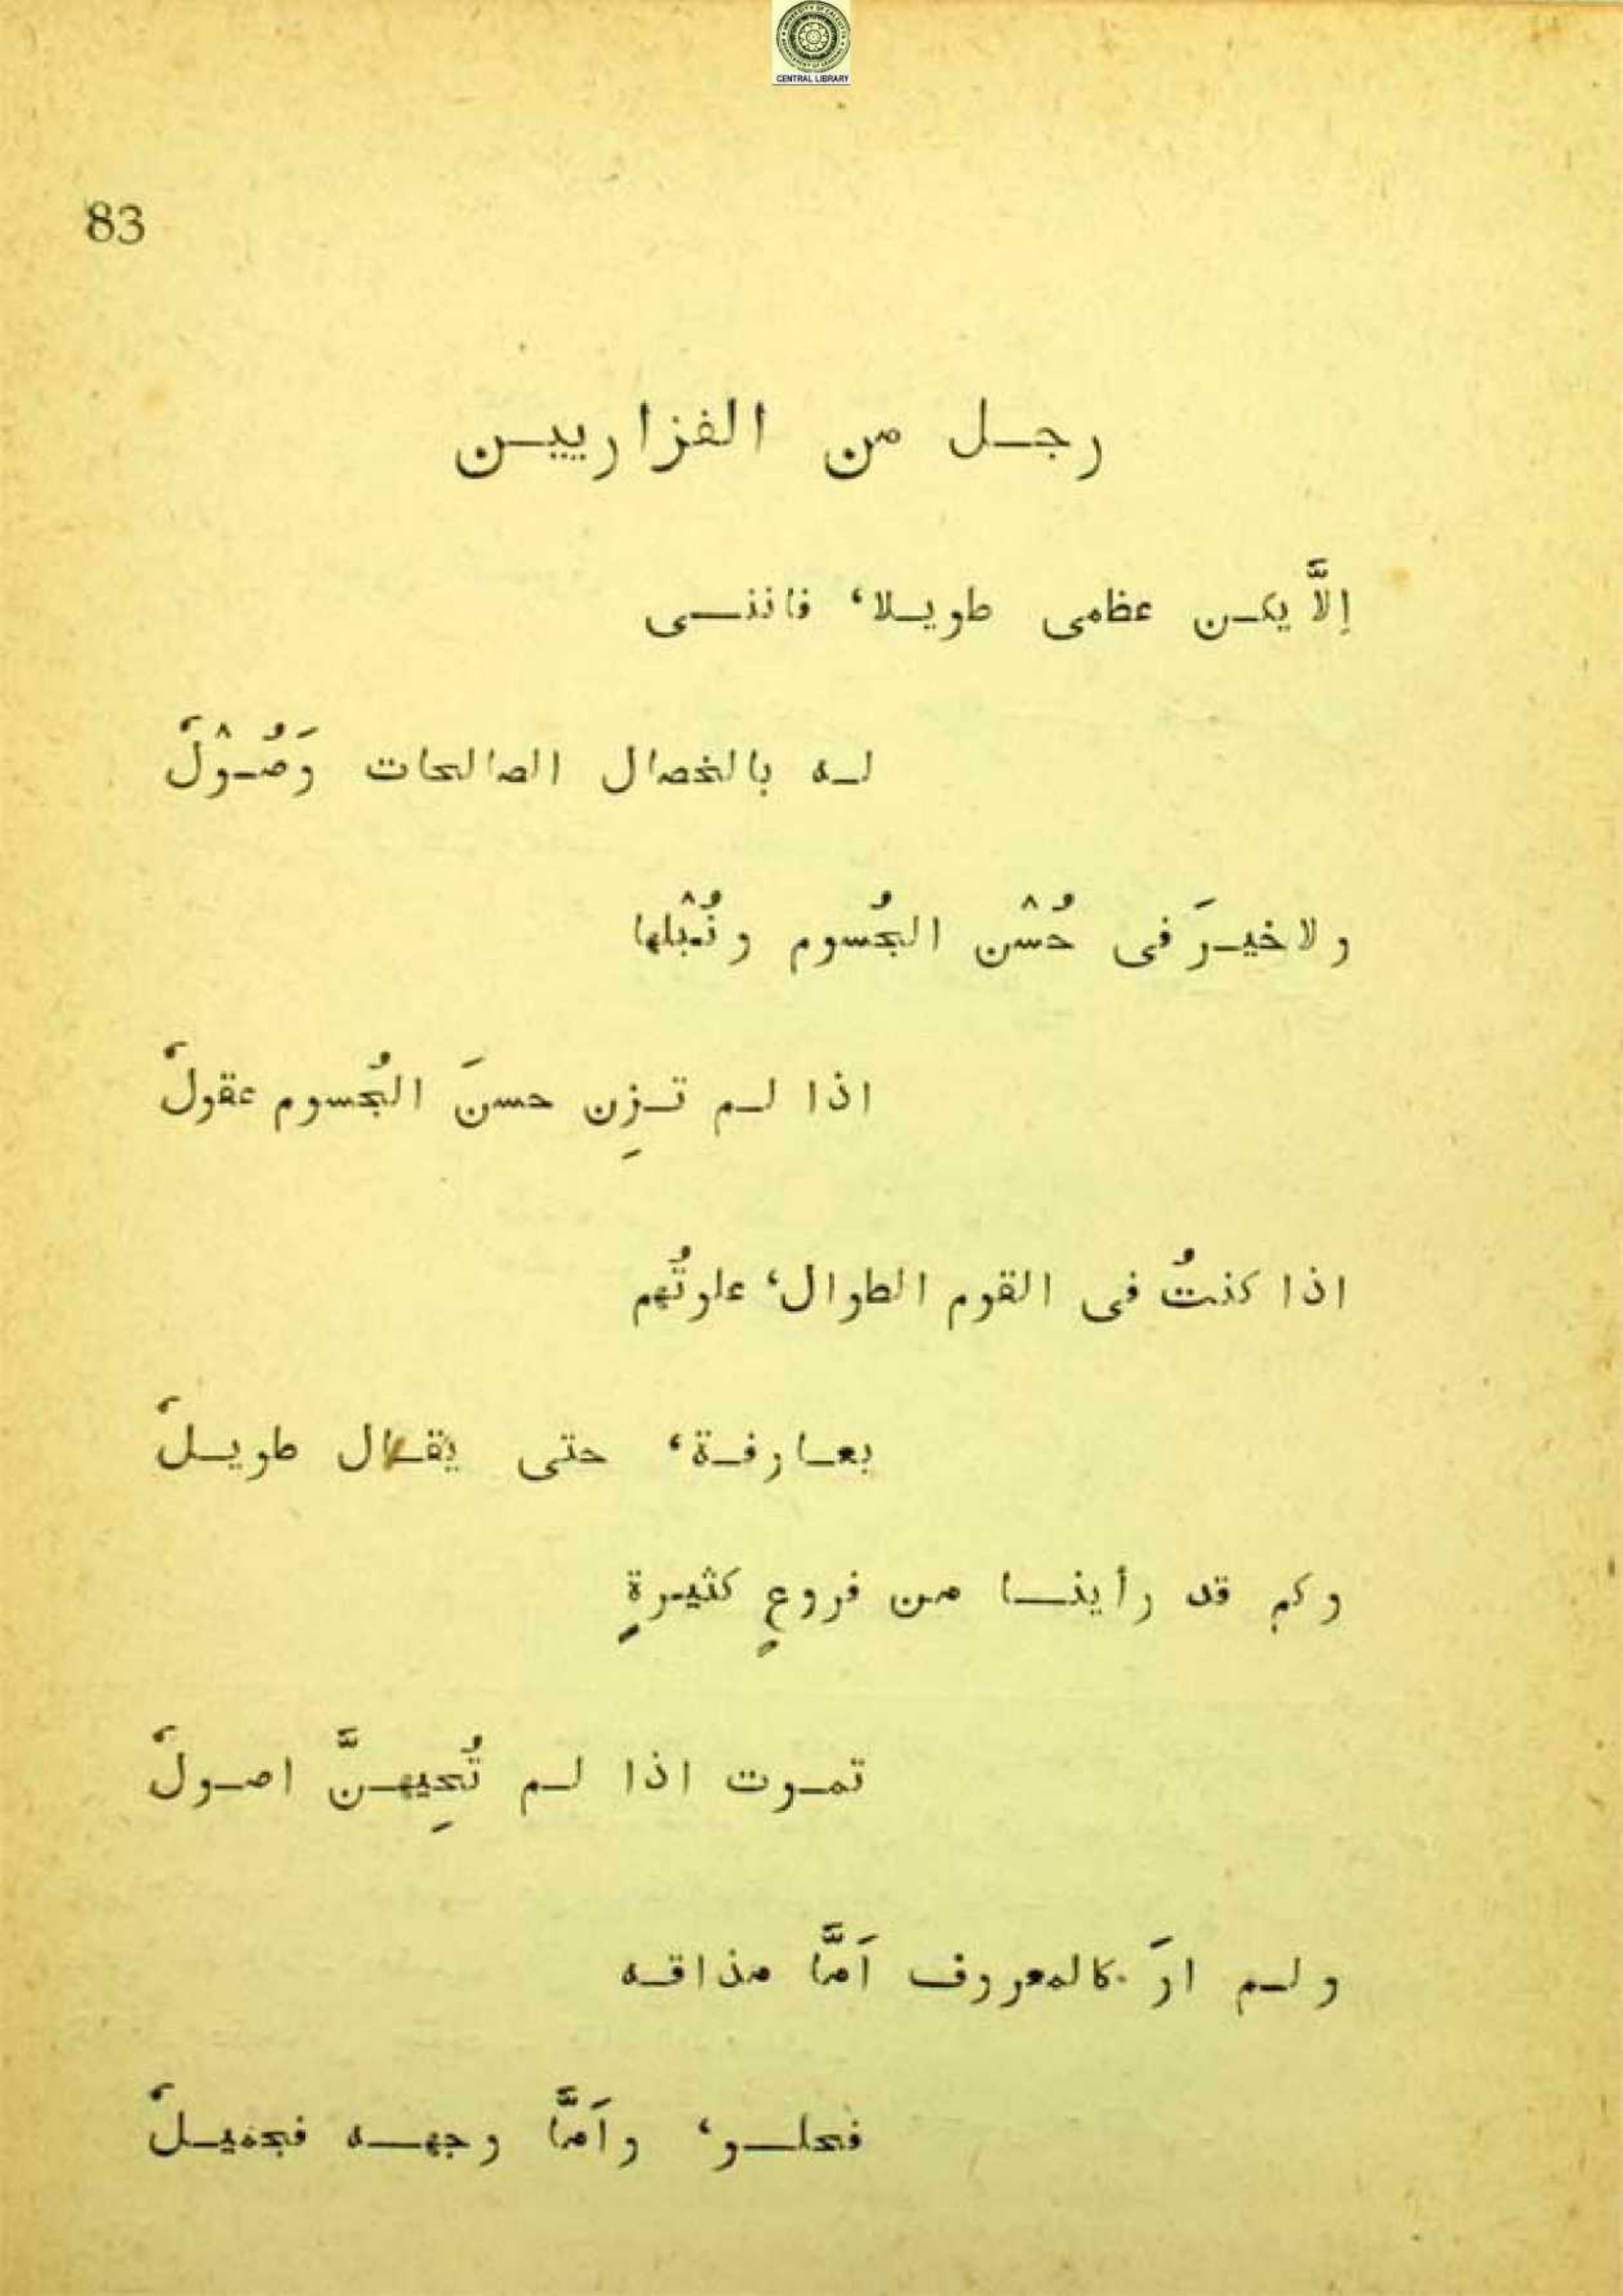 CENTRAL LIBRARY
83
رجل من الفزاريين
إلَّا يكن عظمى طويلا، فاننى
له بالخصال الصالحات وَصُوْلُ
ولا خيرَ فى حُسْن الجُسوم ونُبْلها
اذا لم تزِن حسنَ الجُسوم عقولُ
اذا كنتُ فى القوم الطوال، علوتُهم
بعارفة، حتى يقال طويلُ
وكم قد رأينا من فروعٍ كثيرةٍ
تموت اذا لم تُحيِهنَّ اصولُ
ولم ارَ كالمعروف اَمَّا مذاقه
فحلو، واَمَّا وجهه فجميلُ